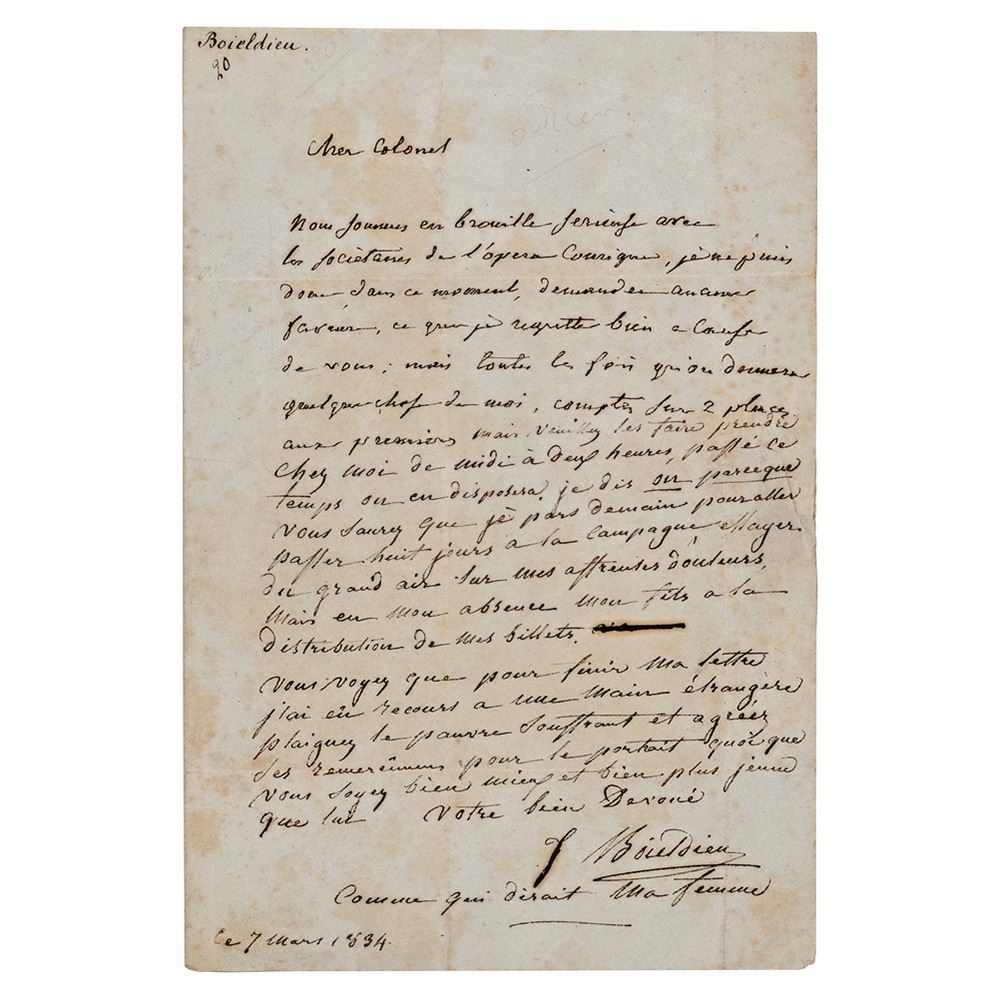 Boieldieu.
20
Cher Colonel
Nous sommes en brouille serieuse avec
les sociétaires de l'opera Comique, je ne puis
donc dans ce moment, demander aucune
faveur, ce que je regrette bien a cause
de vous; mais toutes les fois qu'on donnera
quelque chose de moi, comptés sur 2 places
aux premieres mais veuillez les faire prendre
chez moi de midi à deux heures, passé ce
temps on en disposera, je dis on parceque
vous saurez que je pars demain pour aller
passer huit jours a la campagne essayer
du grand air sur mes affreuses douleurs,
Mais en mon absence mon fils a la
distribution de mes billets.
vous voyez que pour finir ma lettre
j'ai eû recours a une main étrangère
plaignez le pauvre souffrant et agréez
ses remercimens pour le portrait quoi que
vous soyez bien mieux et bien plus jeune
que lui votre bien Devoué
J Boieldieu
Comme qui dirait Ma femme
Ce 7 Mars 1834.